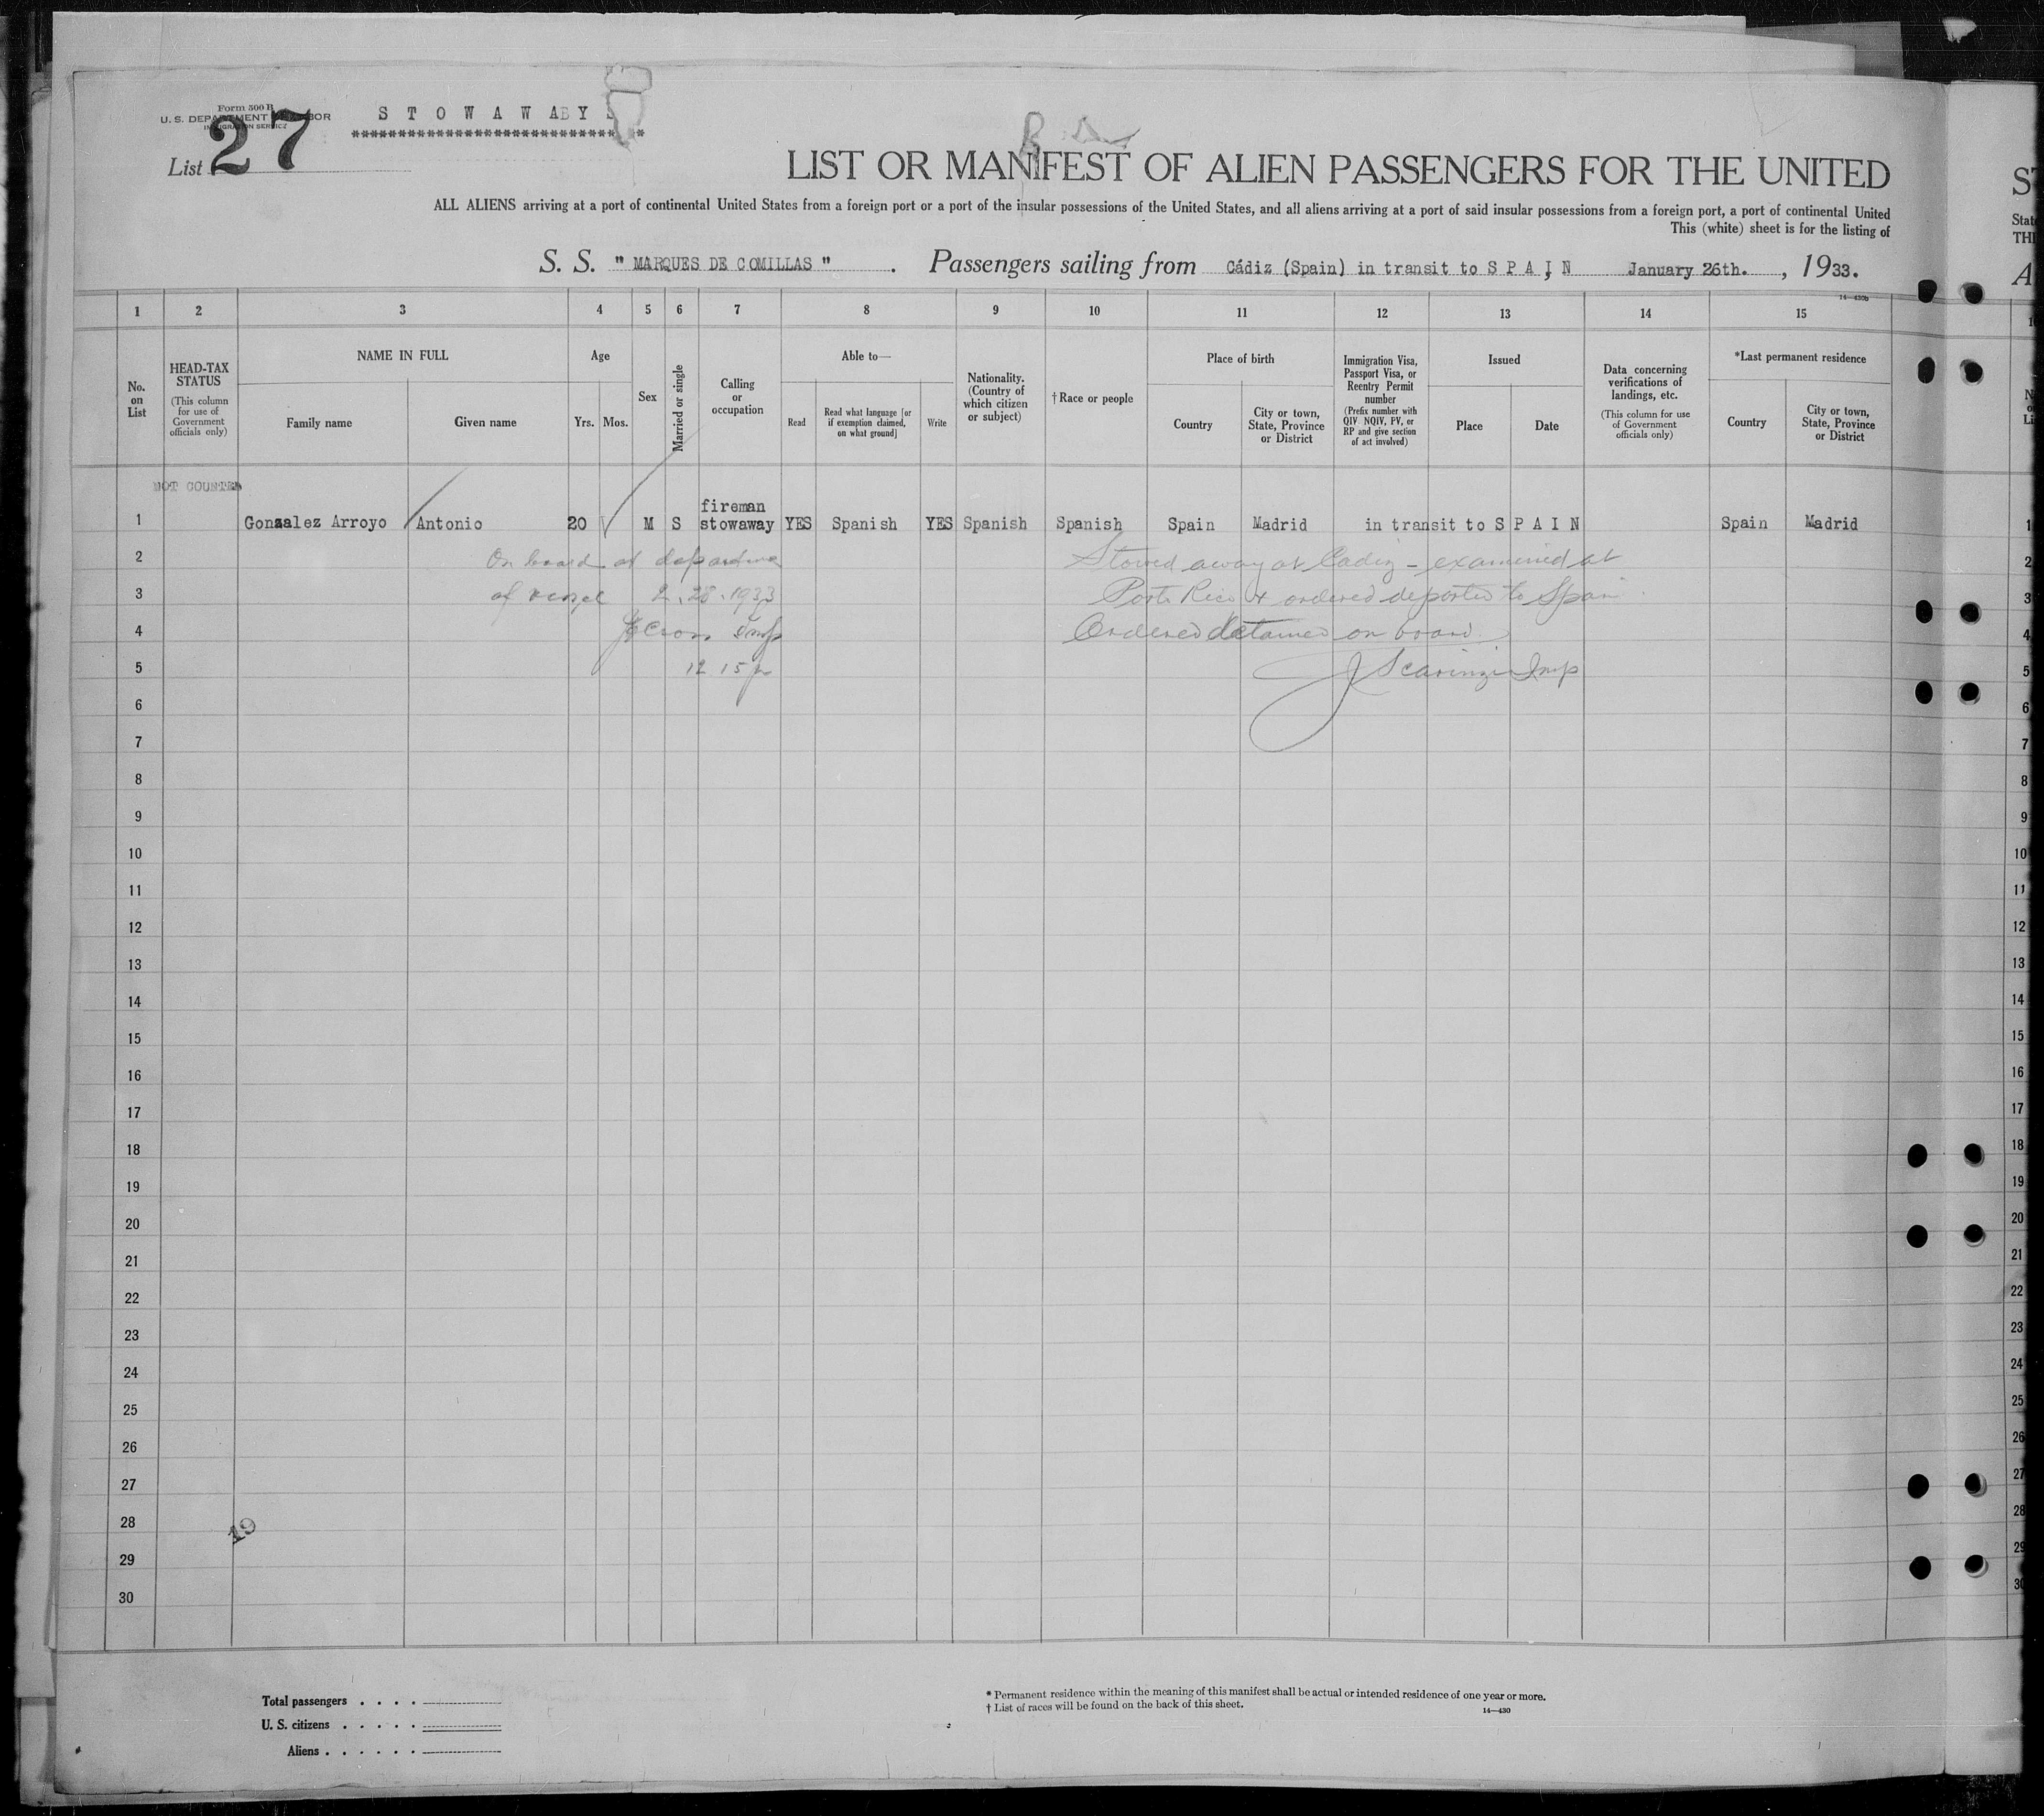 Form 500 B
U. S. DEPARTMENT OF LABOR
IMMIGRATION SERVICE
S T O W A W A Y S
**********************************
List 27
LIST OR MANIFEST OF ALIEN PASSENGERS FOR THE UNITED
ALL ALIENS arriving at a port of continental United States from a foreign port or a port of the insular possessions of the United States, and all aliens arriving at a port of said insular possessions from a foreign port, a port of continental United
This (white) sheet is for the listing of
S. S. " MARQUES DE COMILLAS " . Passengers sailing from Cádiz (Spain) in transit to S P A I N January 26th. , 1933.
14—430b
1 2 3 4 5 6 7 8 9 10 11 12 13 14 15
No. on List
HEAD-TAX STATUS
(This column for use of Government officials only)
NAME IN FULL
Family name Given name
Age
Yrs. Mos.
Sex
Married or single
Calling or occupation
Able to—
Read
Read what language [or if exemption claimed, on what ground]
Write
Nationality. (Country of which citizen or subject)
† Race or people
Place of birth
Country
City or town, State, Province or District
Immigration Visa, Passport Visa, or Reentry Permit number
(Prefix number with QIV NQIV, PV, or RP and give section of act involved)
Issued
Place Date
Data concerning verifications of landings, etc.
(This column for use of Government officials only)
*Last permanent residence
Country
City or town, State, Province or District
NOT COUNTED
fireman
1 Gonzalez Arroyo Antonio 20 M S stowaway YES Spanish YES Spanish Spanish Spain Madrid in transit to S P A I N Spain Madrid 1
2 On board at departure Stowed away at Cadiz - examined at 2
3 of vessel 2.28.1933 Porto Rico & ordered deported to Spain 3
4 Insp Ordered detained on board 4
5 12 15 p J Scaringi Insp 5
6 6
7 7
8 8
9 9
10 10
11 11
12 12
13 13
14 14
15 15
16 16
17 17
18 18
19 19
20 20
21 21
22 22
23 23
24 24
25 25
26 26
27 27
28 28
19
29 29
30 30
Total passengers . . . .
U. S. citizens . . . . .
Aliens . . . . . .
* Permanent residence within the meaning of this manifest shall be actual or intended residence of one year or more.
† List of races will be found on the back of this sheet.
14—430